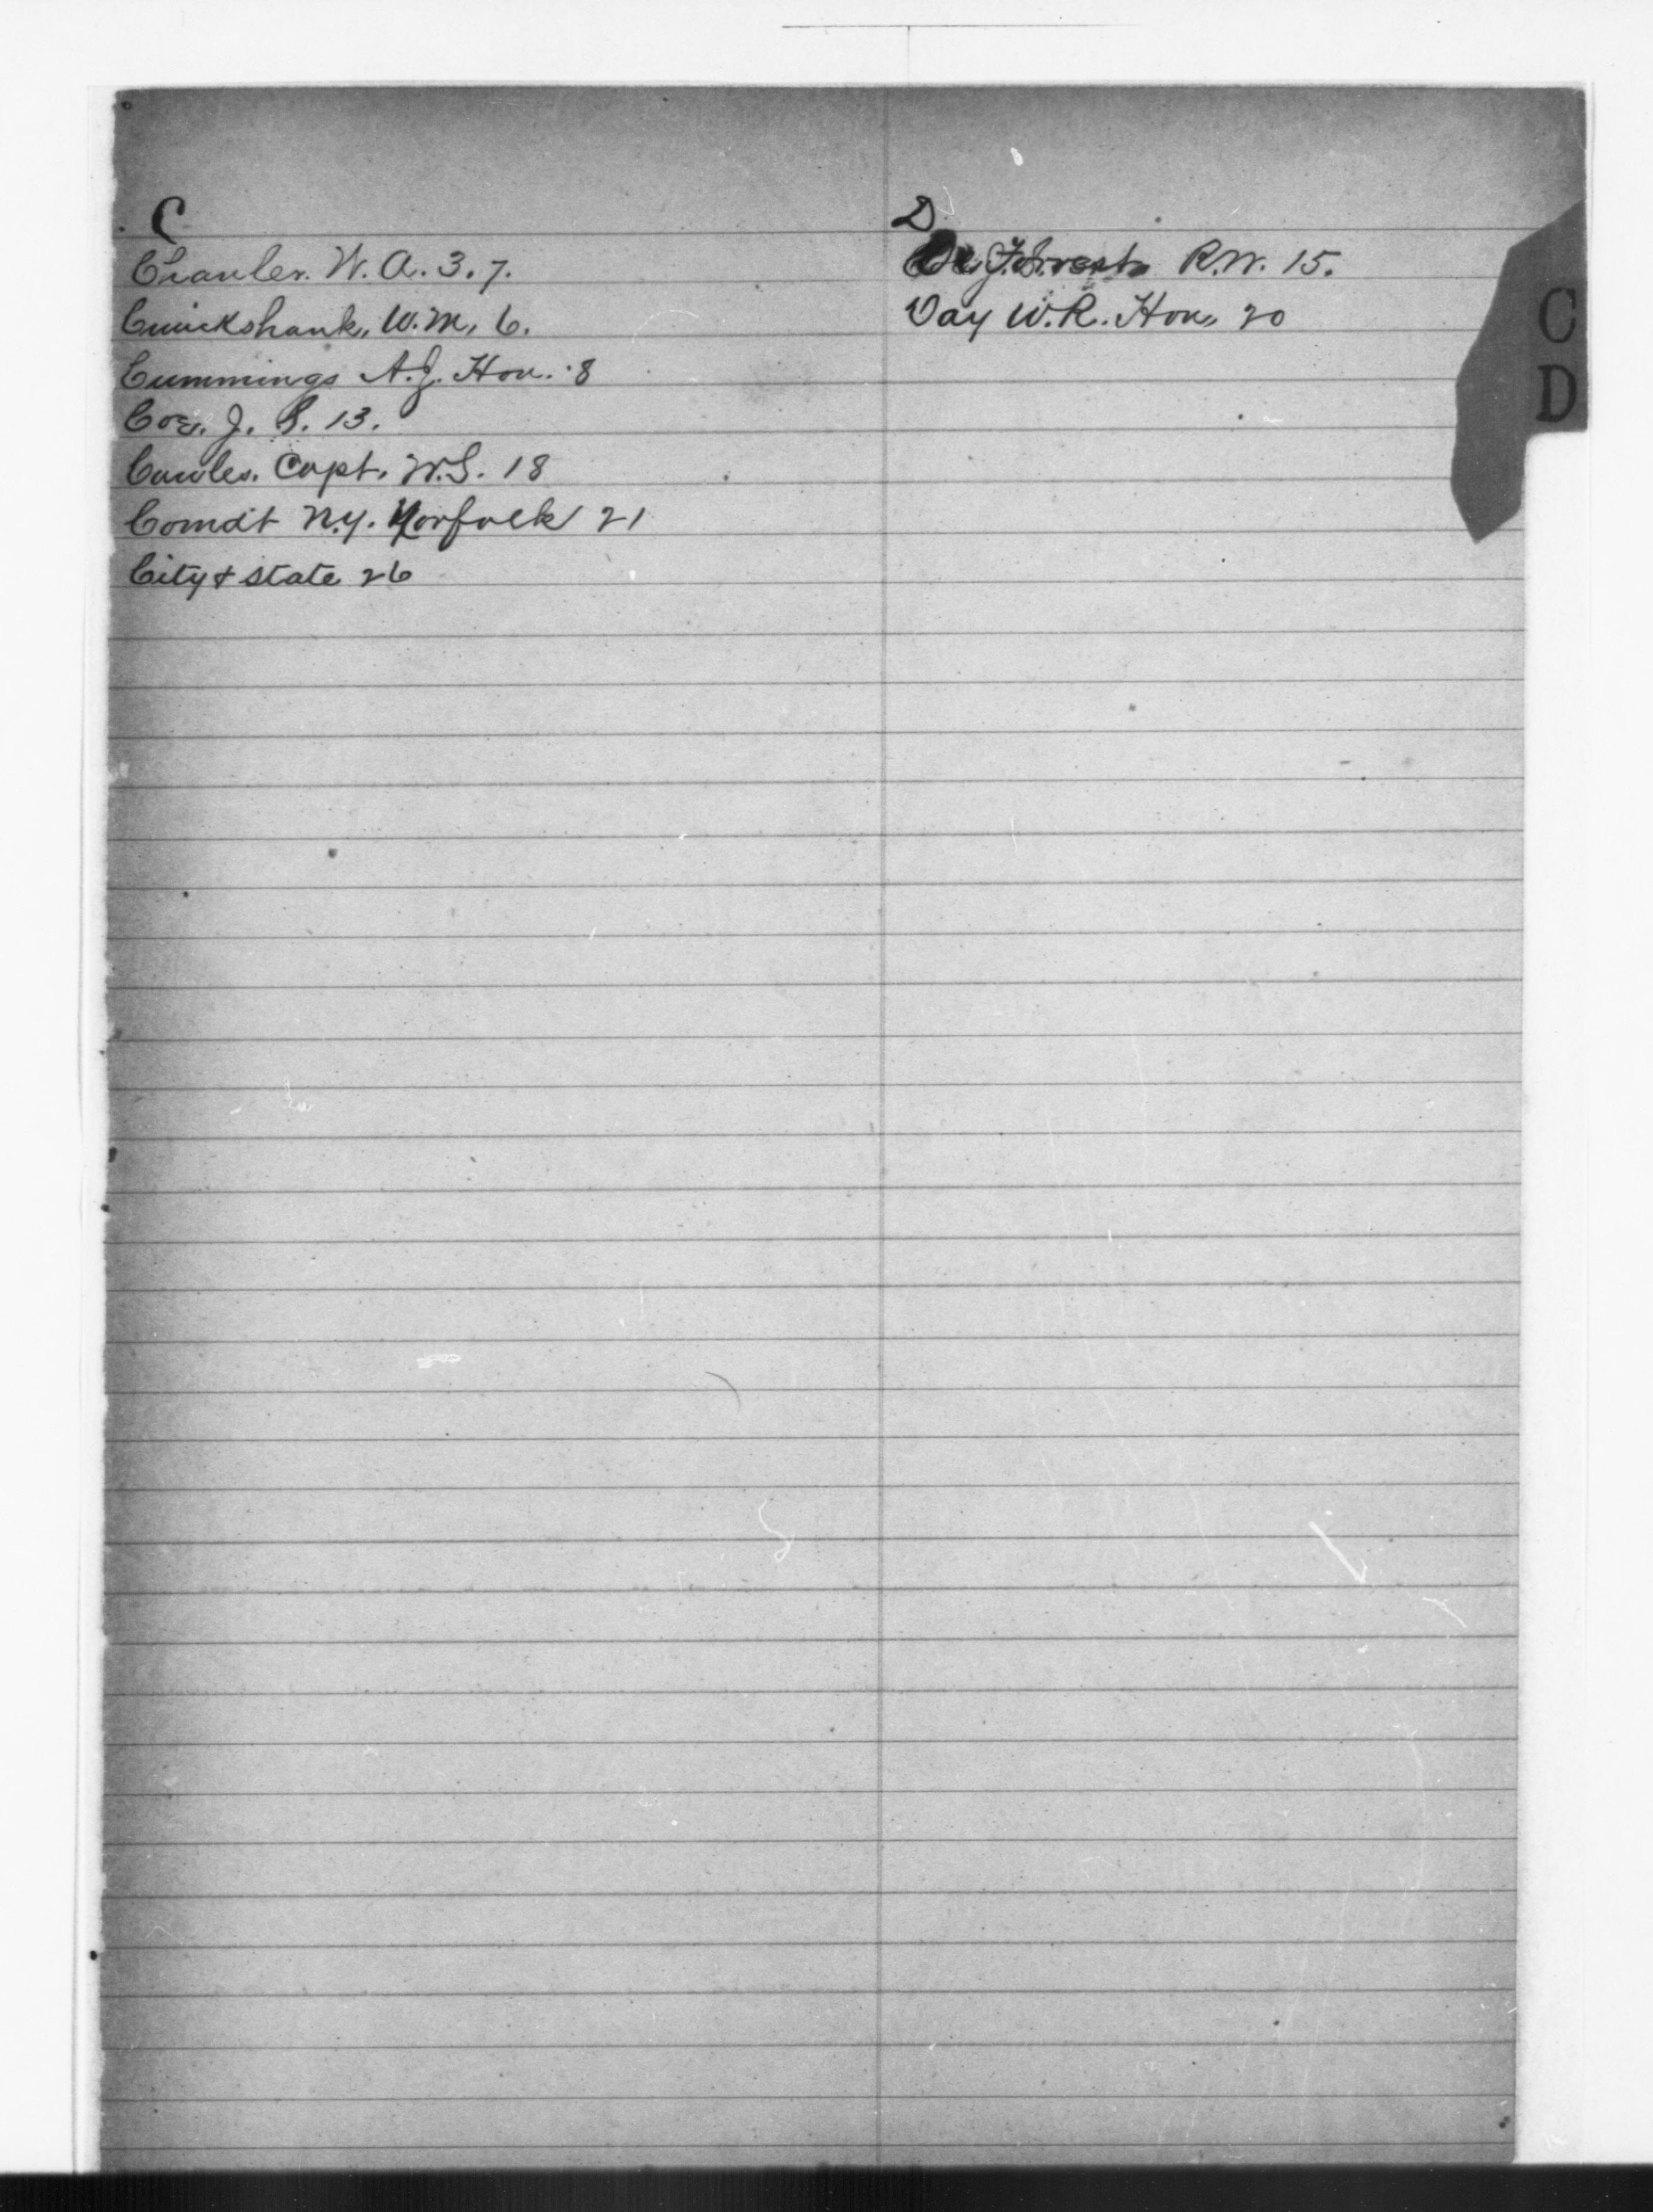 C
Chanler. W. A. 3. 7.
Cruickshank, W. M. 6.
Cummings A. J. Hon. 8
Coe, J. S. 13.
Cowles. Capt. W.S. 18
Comdt N.Y. Norfolk 21
City & State 26
D
De Forrest R.W. 15.
Day W.R. Hon, 20
C
D